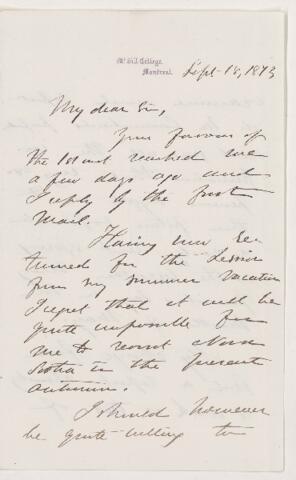 McGill College,
Montreal.
Sept 18, 1873
My dear Sir,
Your favour of
the 1st inst reached me
a few days ago and
I reply by the first
mail.
Having now re
turned for the Session
from my summer vacation
I regret that it will be
quite impossible for
me to revisit Nova
Scotia in the present
autumn.
I should however
be quite willing to